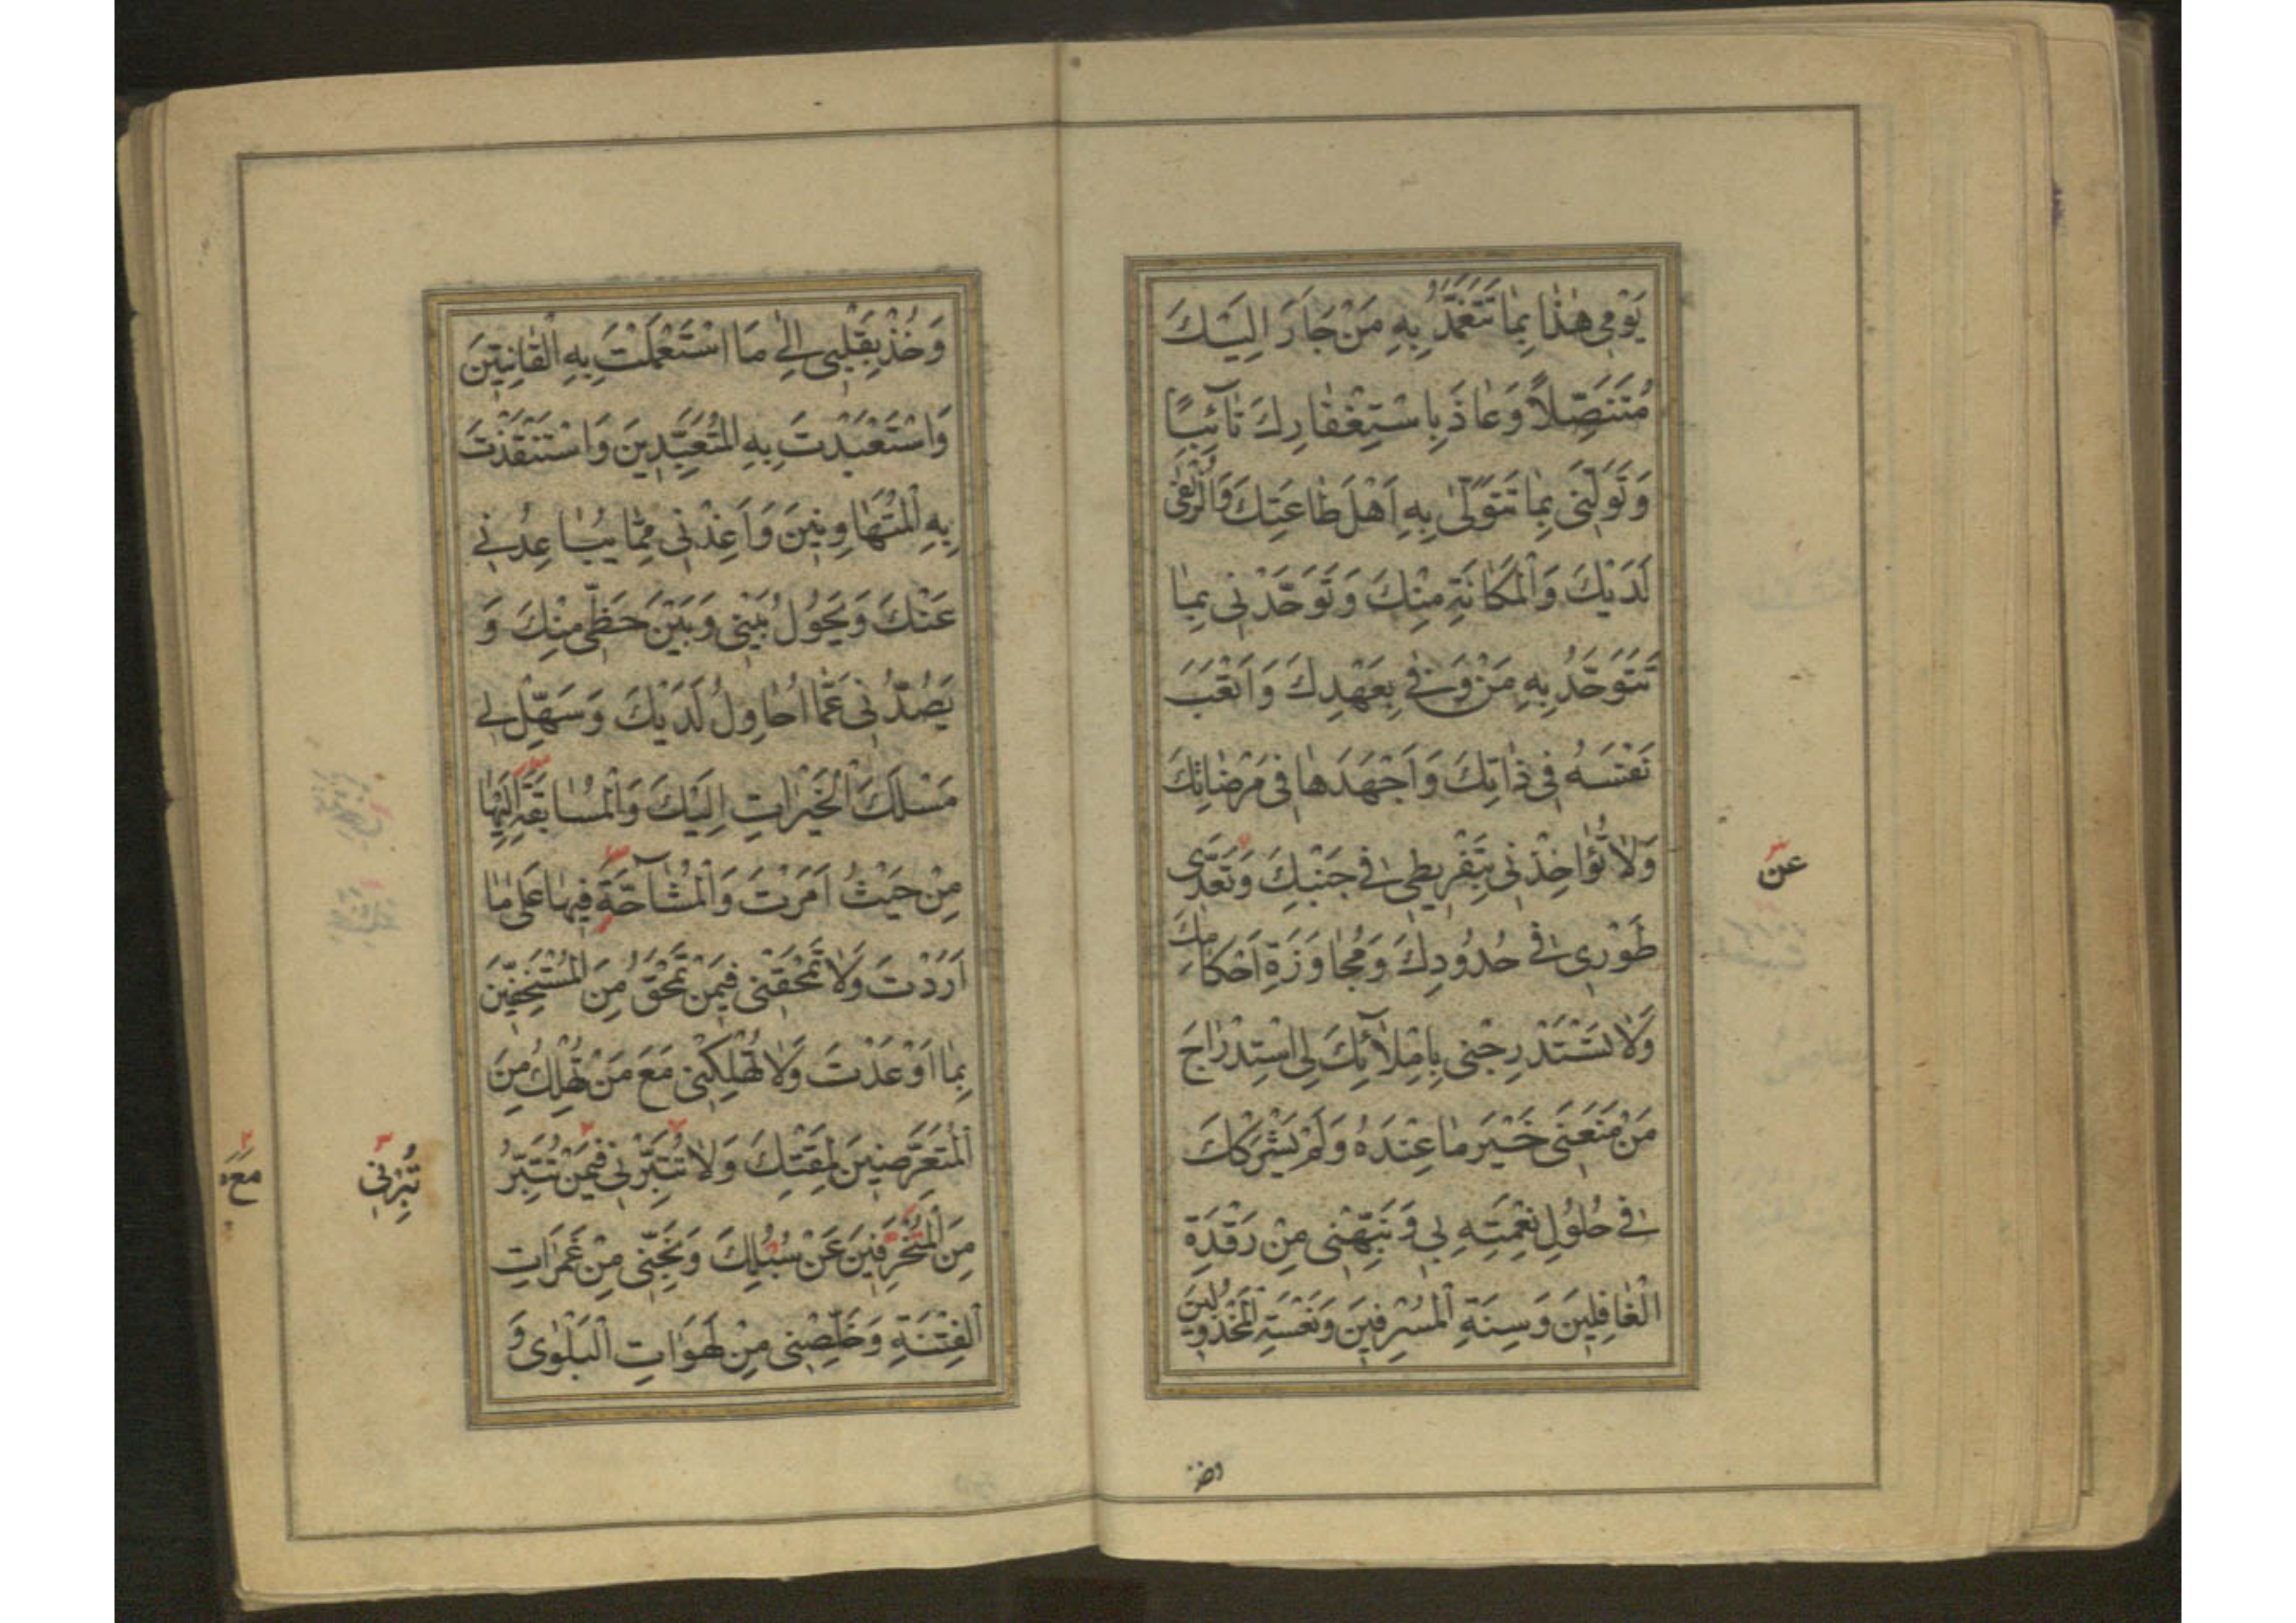 يَوْمِي هٰذَا بِمَا تَتَغَمَّدُ بِهِ مَنْ جَاَرَ اِلَيْكَ
مُتَنَصِّلاً وَعَاذَ بِاسْتِغْفَارِكَ تَآئِبًا
وَتَوَلَّنِى بِمَا تَتَوَلّٰى بِهِ اَهْلَ طَاعَتِكَ وَالزُّلْفٰى
لَدَيْكَ وَالْمَكَانَةِ مِنْكَ وَتَوَحَّدْنِى بِمَا
تَتَوَحَّدُ بِهِ مَنْ وَفٰى بِعَهْدِكَ وَاَتْعَبَ
نَفْسَهُ فِى ذَاتِكَ وَاَجْهَدَهَا فِى مَرْضَاتِكَ
وَلَا تُؤَاخِذْنِى بِتَفْرِيطِى فِى جَنْبِكَ وَتَعَدِّى
عن
طَوْرِى فِى حُدُودِكَ وَمُجَاوَزَةِ اَحْكَامِكَ
وَلَا تَسْتَدْرِجْنِى بِاِمْلَآئِكَ لِى اسْتِدْرَاجَ
مَنْ مَنَعَنِى خَيْرَ مَا عِنْدَهُ وَلَمْ يَشْرَكْكَ
فِى حُلُولِ نِعْمَتِهِ بِى وَنَبِّهْنِى مِنْ رَقْدَةِ
الْغَافِلِينَ وَسِنَةِ الْمُسْرِفِينَ وَنَعْسَةِ الْمَخْذُولِينَ
وخذ
وَخُذْ بِقَلْبِى اِلٰى مَا اسْتَعْمَلْتَ بِهِ الْقَانِتِينَ
وَاسْتَعْبَدْتَ بِهِ الْمُتَعَبِّدِينَ وَاسْتَنْقَذْتَ
بِهِ الْمُتَهَاوِنِينَ وَاَعِذْنِى مِمَّا يُبَاعِدُنِى
عَنْكَ وَيَحُولُ بَيْنِى وَبَيْنَ حَظِّى مِنْكَ وَ
يَصُدُّنِى عَمَّا اُحَاوِلُ لَدَيْكَ وَسَهِّلْ لِى
مَسْلَكَ الْخَيْرَاتِ اِلَيْكَ وَالْمُسَابَقَةِ اِلَيْهَا
مِنْ حَيْثُ اَمَرْتَ وَالْمُشَآحَّةَ فِيهَا عَلٰى مَا
اَرَدْتَ وَلَا تَمْحَقْنِى فِيمَنْ تَمْحَقُ مِنَ الْمُسْتَخِفِّينَ
بِمَا اَوْعَدْتَ وَلَا تُهْلِكْنِى مَعَ مَنْ تُهْلِكُ مِنَ
الْمُتَعَرِّضِينَ لِمَقْتِكَ وَلَا تُتَبِّرْنِى فِيمَنْ تُتَبِّرُ
تُبِرْنِى
مَعَ
مِنَ الْمُنْحَرِفِينَ عَنْ سُبُلِكَ وَنَجِّنِى مِنْ غَمَرَاتِ
الْفِتْنَةِ وَخَلِّصْنِى مِنْ لَهَوَاتِ الْبَلْوٰى وَ